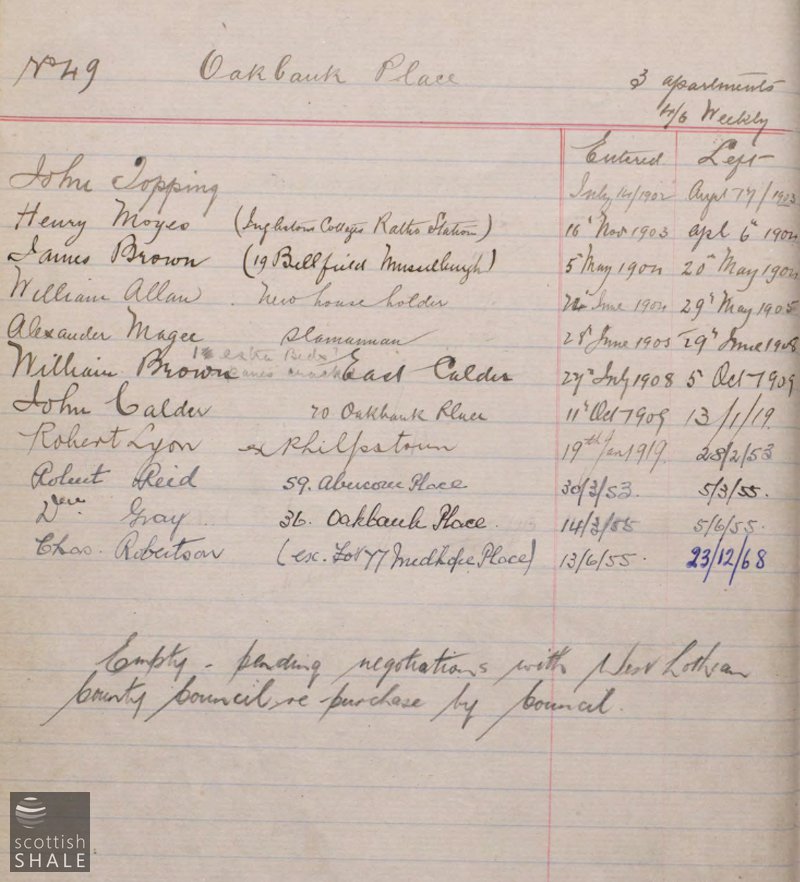 No 49 Oakbank Place
3 apartments
4/6 Weekly
Entered Left
John Topping July 14/1902 Augst 17/1903
Henry Moyes (Inglestons Cottages Ratho Station) 16" Nov 1903 apl 6" 1904
James Brown (19 Bellfield Musselburgh) 5" May 1904 20" May 1904
William Allan New house holder June 1904 29" May 1905
Alexander Magee Slamannan 28" June 1905 29" June 1908
extra Beds
William Brown East Calder 27" July 1908 5" Oct 1909
John Calder 70 Oakbank Place 11" Oct 1909 13/1/19.
Robert Lyon ex Philpstoun 19th Jan 1919. 28/2/53
Robert Reid 59. Abercorn Place 30/3/53. 5/3/55.
Wm Gray 36. Oakbank Place. 14/3/55 5/6/55.
Chas. Robertson (exc. for 77 Midhope Place) 13/6/55. 23/12/68
Empty - pending negotiations with West Lothian
County Council re purchase by Council.
scottish
SHALE